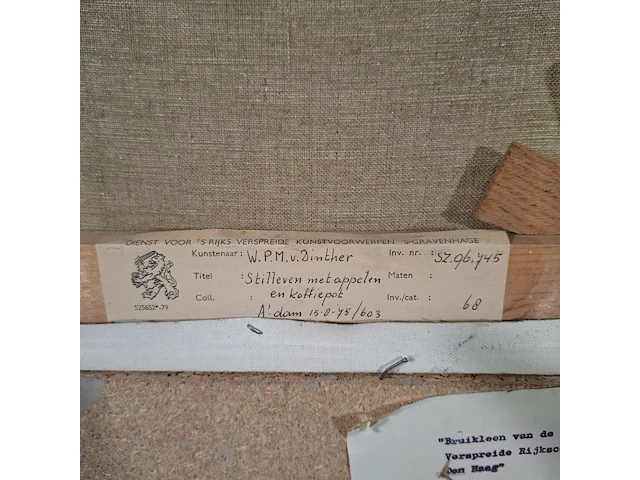 DIENST VOOR 'S RIJKS VERSPREIDE KUNSTVOORWERPEN 'S-GRAVENHAGE
Kunstenaar: W.P.M.v.Dinther Inv. nr. : SZ.96.745
Titel : Stilleven met appelen Maten :
Coll. : en koffiepot Inv./cat. : 68
A'dam 15-8-75/603
525652*-79
"Bruikleen van de
Verspreide Rijksco
Den Haag"